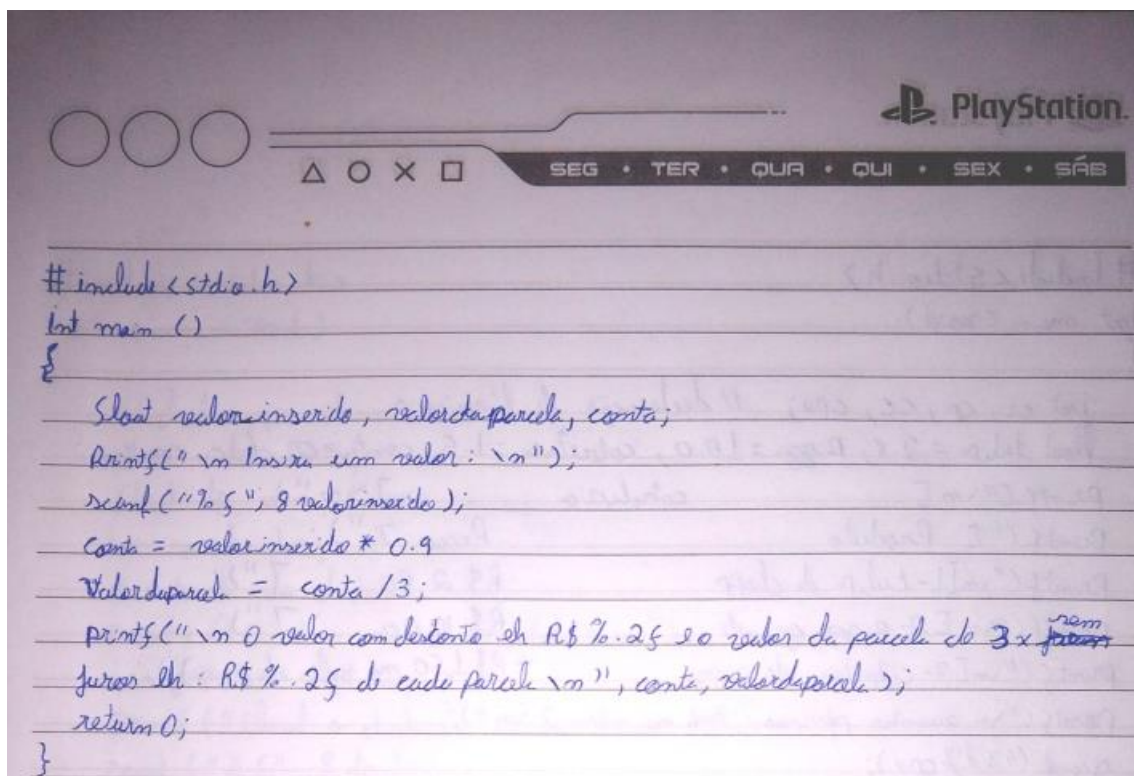 PlayStation.
SEG • TER • QUA • QUI • SEX • SÁB
# include <stdio.h>
int main ()
{
float valorinserido, valordaparcela, conta;
Printf("\n Insira um valor: \n");
scanf("%f", &valorinserido);
conta = valorinserido * 0.9
Valordaparcela = conta /3;
printf("\n O valor com desconto eh R$ %.2f e o valor da parcela de 3x sem
juros eh: R$ %.2f de cada parcela \n", conta, valordaparcela);
return 0;
}